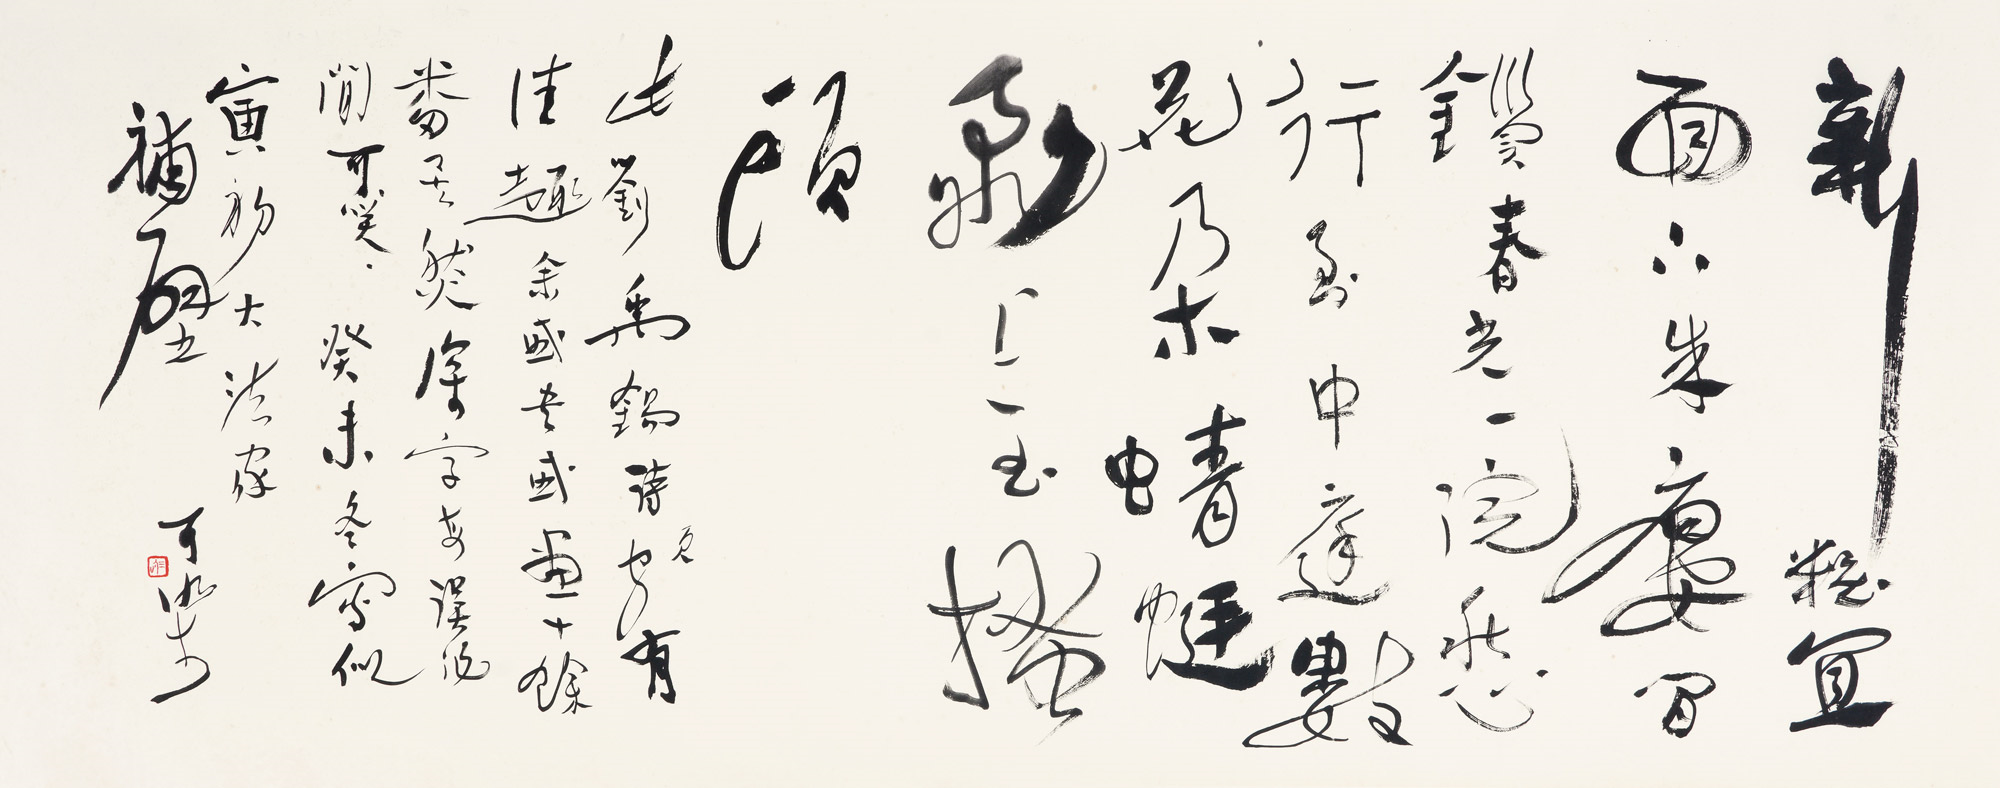 新糚宜
面下朱廔間
鎖春光一院愁
行到中庭數
花朵蜻蜓
飛上玉搔
頭
此劉禹錫詩有
佳趣余或書或畫十餘
番矣然深字每誤為
閒可笑癸未冬寫似
寅初大法家
補壁
可染